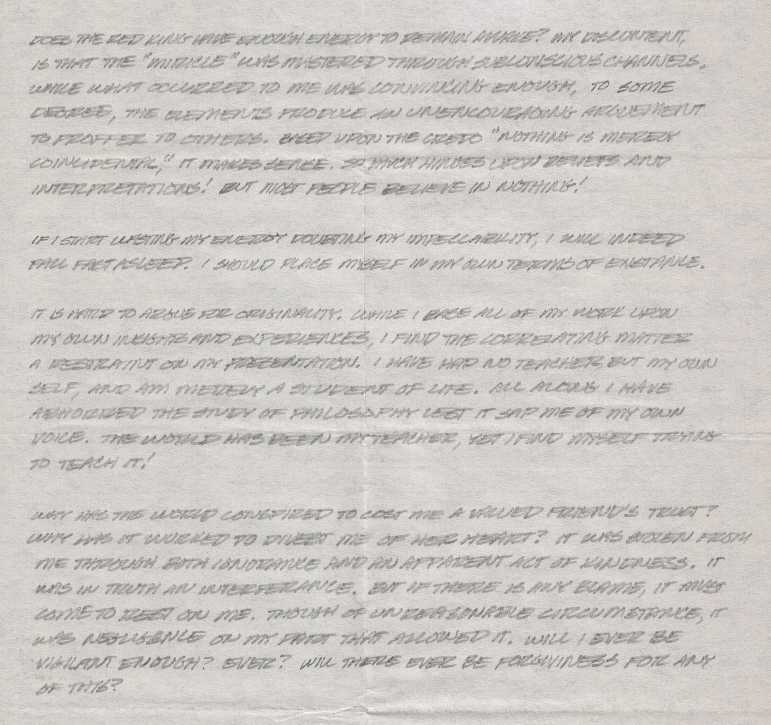 DOES THE RED KING HAVE ENOUGH ENERGY TO REMAIN AWAKE? MY DISCONTENT,
IS THAT THE "MIRICLE" WAS MASTERED THROUGH SUBCONSCIOUS CHANNELS.
WHILE WHAT OCCURRED TO ME WAS CONVINCING ENOUGH, TO SOME
DEGREE, THE ELEMENTS PRODUCE AN UNENCOURAGING ARGUEMENT
TO PROFFER TO OTHERS. BASED UPON THE CREDO "NOTHING IS MERELY
COINCIDENTAL," IT MAKES SENSE. SO MUCH HINGES UPON BELIEFS AND
INTERPRETATIONS! BUT MOST PEOPLE BELIEVE IN NOTHING!
IF I START WASTING MY ENERGY DOUBTING MY IMPECCABILITY, I WILL INDEED
FALL FAST ASLEEP. I SHOULD PLACE MYSELF IN MY OWN TERMS OF EXISTANCE.
IT IS HARD TO ARGUE FOR ORIGINALITY. WHILE I BASE ALL OF MY WORK UPON
MY OWN INSIGHTS AND EXPERIENCES, I FIND THE CORRELATING MATTER
A RESTRAINT ON MY PRESENTATION. I HAVE HAD NO TEACHER BUT MY OWN
SELF, AND AM MERELY A STUDENT OF LIFE. ALL ALONG I HAVE
ABHORRED THE STUDY OF PHILOSOPHY LEST IT SAP ME OF MY OWN
VOICE. THE WORLD HAS BEEN MY TEACHER, YET I FIND MYSELF TRYING
TO TEACH IT!
WHY HAS THE WORLD CONSPIRED TO COST ME A VALUED FRIEND'S TRUST?
WHY HAS IT WORKED TO DIVEST ME OF HER HEART? IT WAS STOLEN FROM
ME THROUGH BOTH IGNORANCE AND AN APPARENT ACT OF KINDNESS. IT
WAS IN TRUTH AN INTERFERANCE. BUT IF THERE IS ANY BLAME, IT MUST
COME TO REST ON ME. THOUGH OF UNREASONABLE CIRCUMSTANCE, IT
WAS NEGLIGENCE ON MY PART THAT ALLOWED IT. WILL I EVER BE
VIGILANT ENOUGH? EVER? WILL THERE EVER BE FORGIVINESS FOR ANY
OF THIS?